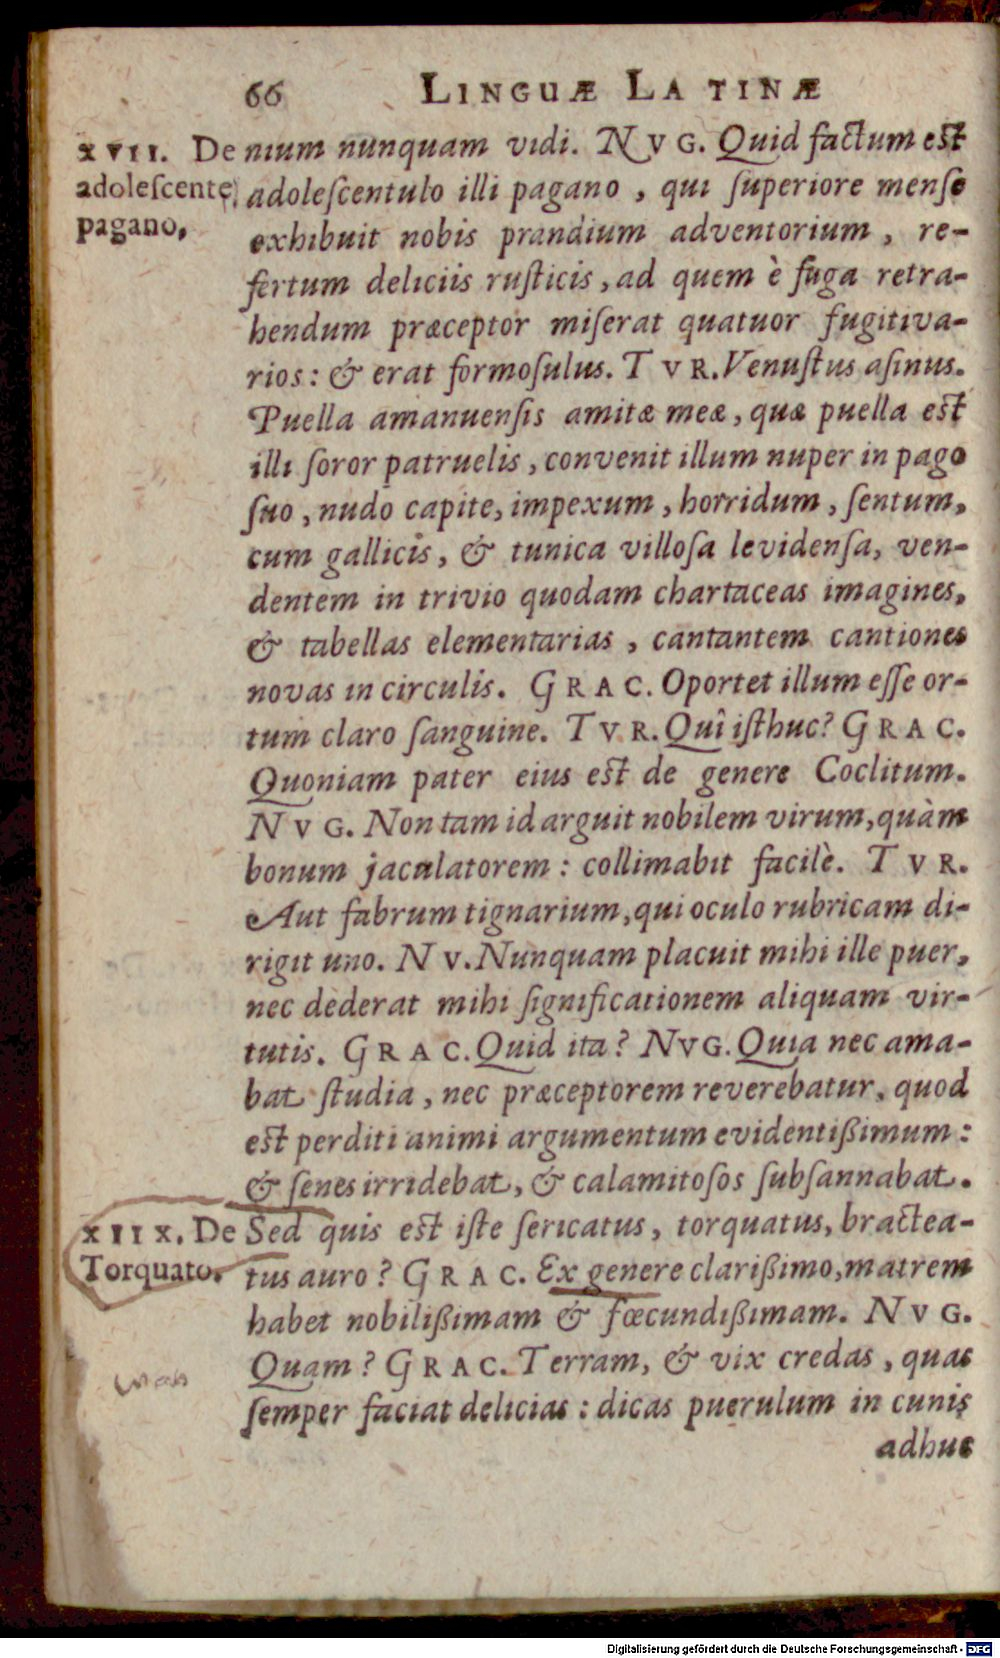 66 LINGUÆ LATINÆ
XVII. De
adolescente
pagano.
nium nunquam vidi. NVG. Quid factum est
adolescentulo illi pagano, qui superiore mense
exhibuit nobis prandium adventorium, re-
fertum deliciis rusticis, ad quem è fuga retra-
hendum præceptor miserat quatuor fugitiva-
rios: & erat formosulus. TVR. Venustus asinus.
Puella amanuensis amitæ meæ, quæ puella est
illi soror patruelis, convenit illum nuper in pago
suo, nudo capite, impexum, horridum, sentum,
cum gallicis, & tunica villosa levidensa, ven-
dentem in trivio quodam chartaceas imagines,
& tabellas elementarias, cantantem cantiones
novas in circulis. GRAC. Oportet illum esse or-
tum claro sanguine. TVR. Quî isthuc? GRAC.
Quoniam pater eius est de genere Coclitum.
NVG. Non tam id arguit nobilem virum, quàm
bonum jaculatorem: collimabit facilè. TVR.
Aut fabrum tignarium, qui oculo rubricam di-
rigit uno. NV. Nunquam placuit mihi ille puer,
nec dederat mihi significationem aliquam vir-
tutis. GRAC. Quid ita? NVG. Quia nec ama-
bat studia, nec præceptorem reverebatur, quod
est perditi animi argumentum evidentißimum:
& senes irridebat, & calamitosos subsannabat.
XIIX. De
Torquato.
Sed quis est iste sericatus, torquatus, bractea-
tus auro? GRAC. Ex genere clarißimo, matrem
habet nobilißimam & fœcundißimam. NVG.
Quam? GRAC. Terram, & vix credas, quas
semper faciat delicias: dicas puerulum in cunis
adhuc
Digitalisierung gefördert durch die Deutsche Forschungsgemeinschaft - DFG